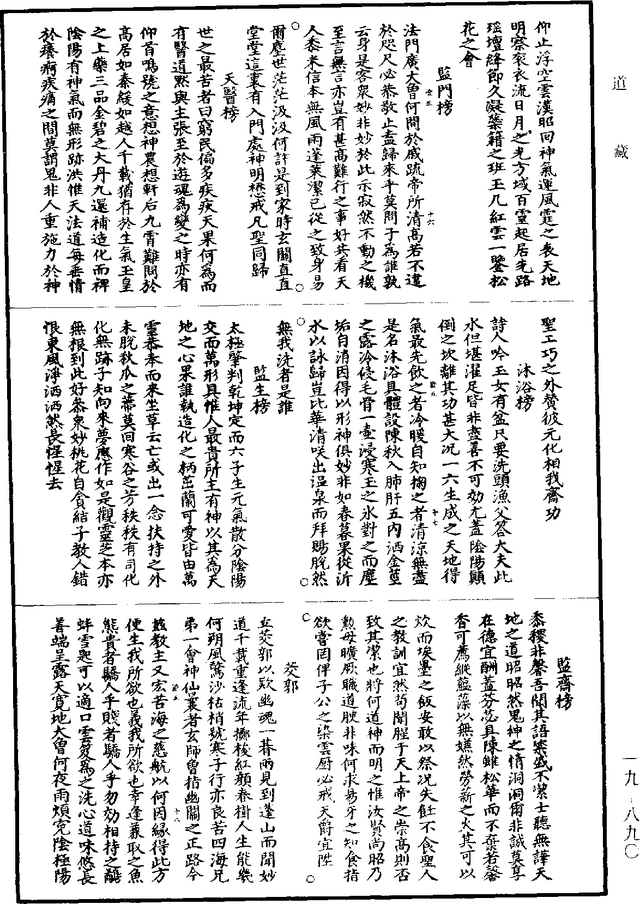 道藏
仰止浮空雲漢昭回神氣運風霆之表天地
明察衮衣流日月之光方域百靈起居先路
瑶壇絳節久凝蘂籍之班玉几紅雲一豎松
花之會
監門榜
法門廣大曽何間於戚疏帝所清高若不違
於咫尺必恭敬止盍歸來乎莫問子為誰孰
云身是客衆妙非妙於此示寂然不動之機
至言無言亦豈有甚高難行之事好共看天
人黍米信本無風雨蓬萊潔已從之致身易
爾塵世茫茫汲汲何許是到家時玄關直直
堂堂這裏有入門處神明懋戒凡聖同歸
天醫榜
世之最苦者曰窮民偏多疾疢天果何為而
有醫道默與主張至於遊魂為變之時亦有
仰首鳴號之意想神農想軒后九霄難問於
高居如秦緩如越人千載猶存於生氣玉皇
之上藥三品金碧之大丹九還補造化而裨
陰陽有神氣而無形跡洪惟天法道每垂情
於癢痾疾痛之間莫謂鬼非人重施力於神
聖工巧之外贊彼元化相我齋功
沐浴榜
詩人吟玉女有盆只要洗頭漁父荅大夫此
水但堪濯足皆非盡善不可効尤蓋陰陽顚
倒之坎離其功甚大況一六生成之天地得
氣最先飲之者冷暖自知掬之者清涼無盡
是名沐浴具體設陳秋入肺肝五内洒金莖
之露冷侵毛骨一壷浸寒玉之氷對之而塵
垢自消因得以形神俱妙非如春暮果從沂
水以詠歸豈比華清咲出温泉而拜賜脫然
無我洗者是誰
監生榜
太極肇判乾坤定而六子生元氣散分陰陽
交而萬形具惟人最貴所主有神以其為天
地之心果誰執造化之柄茁蘭可愛皆由萬
靈恭奉而来坐草云亡或出一念扶持之外
未脫秋瓜之蔕莫回寒谷之芳秩秩有司化
化無跡子知向來夢應作如是觀靈芝本亦
無根到此好叅衆妙桃花自貪結子教人錯
恨東風淨洒洒然長惺惺去
監齋榜
黍稷非馨吾聞其語粢盛不絜士聽無譁天
地之道昭昭然鬼神之情洞洞爾非誠莫享
在德宜酬蓋芬苾且陳雖松華而不棄若馨
香可薦縱藴藻以無嫌然勞薪之火其可以
炊而埃墨之飯安敢以祭况失飪不食聖人
之教訓宜然苟聞腥于天上帝之崇高則否
致其潔也將何道神而明之惟汝賢尚昭乃
勲毋曠厥職道腴非味何求易牙之知食指
欲嘗罔俾子公之染雲厨必戒天爵宜陞
茭郭
立茭郭以欵幽魂一暮雨見到蓬山而聞妙
道千載重逢流年擲梭紅顏春樹人生能幾
何朔風驚沙枯梢號寒子行亦良苦四海兄
弟一會神仙曩者玄師曾指幽關之正路今
兹教主又宏苦海之慈航以何因緣得此方
便生我所欲也義我所欲也幸逢蕆取之魚
能貴者驕人乎賤者驕人乎勿効相持之鷸
蚌雪匙可以適口雲笈為之洗心道味悠長
善端呈露天寛地大曽何夜雨煩宛陰極陽
一九-八九〇